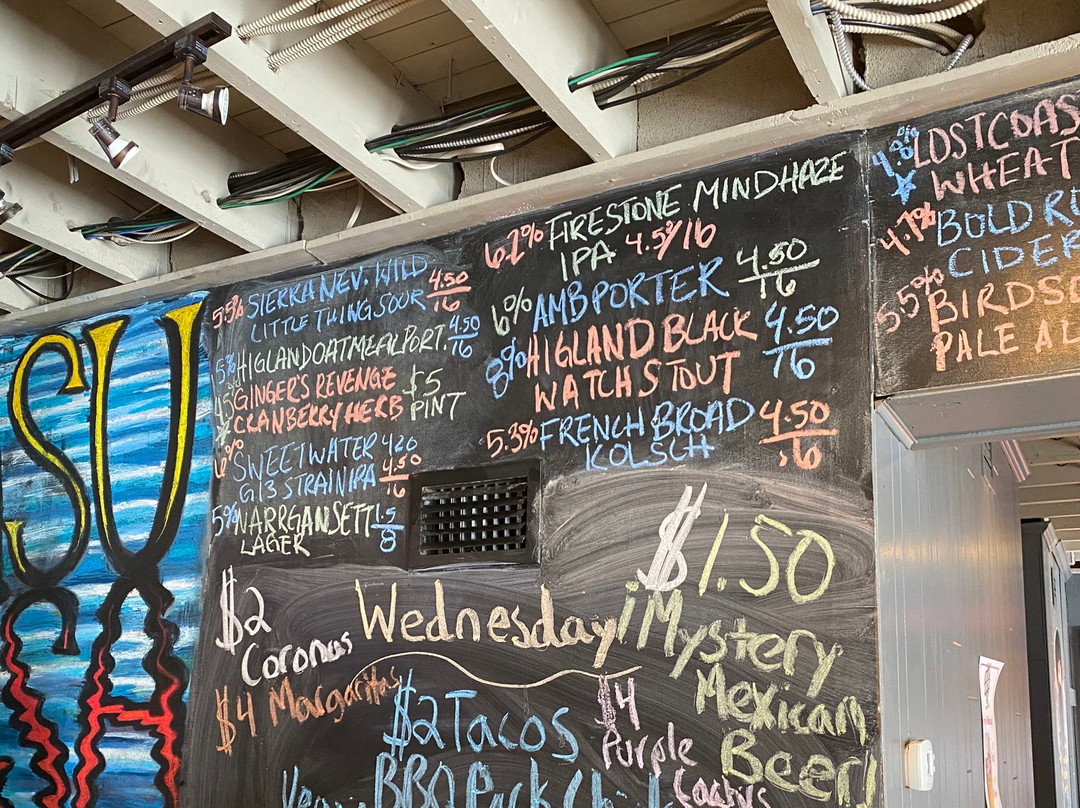 SU
CH
5.5% SIERRA NEV. WILD 4.50/16
LITTLE THING SOUR
5% HIGLAND OATMEAL PORT. 4.50/16
GINGER'S REVENGE $5
CRANBERRY HERB PINT
6% SWEETWATER 420 4.50/16
G13 STRAIN IPA
5% NARRGANSETT 1.5/8
LAGER
6.2% FIRESTONE MINDHAZE
IPA 4.5/16
6% AMB PORTER 4.50/16
8% HIGLAND BLACK 4.50/16
WATCH STOUT
5.3% FRENCH BROAD 4.50/16
KOLSCH
4.8% LOSTCOAS
WHEAT
4.7% BOLD R
CIDER
5.5% BIRDS
PALE AL
$2
Coronas
$4 Margaritas
Wednesday
$2 Tacos
BBQ Pork
$4
Purple
Cactus
$1.50
¡Mystery
Mexican
Beer!